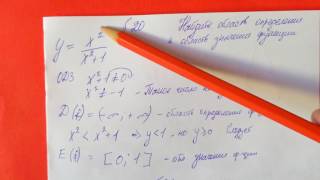 20 Найдите область определения
и область значения функции
y = x²/(x²+1)
ОДЗ x²+1≠0
x² ≠ -1 - такое число
D(f) = (-∞, +∞) - область определения ф
x² < x²+1 ⇒ y<1 - но y≥0
E(f) = [0; 1] - это значения ф-ции